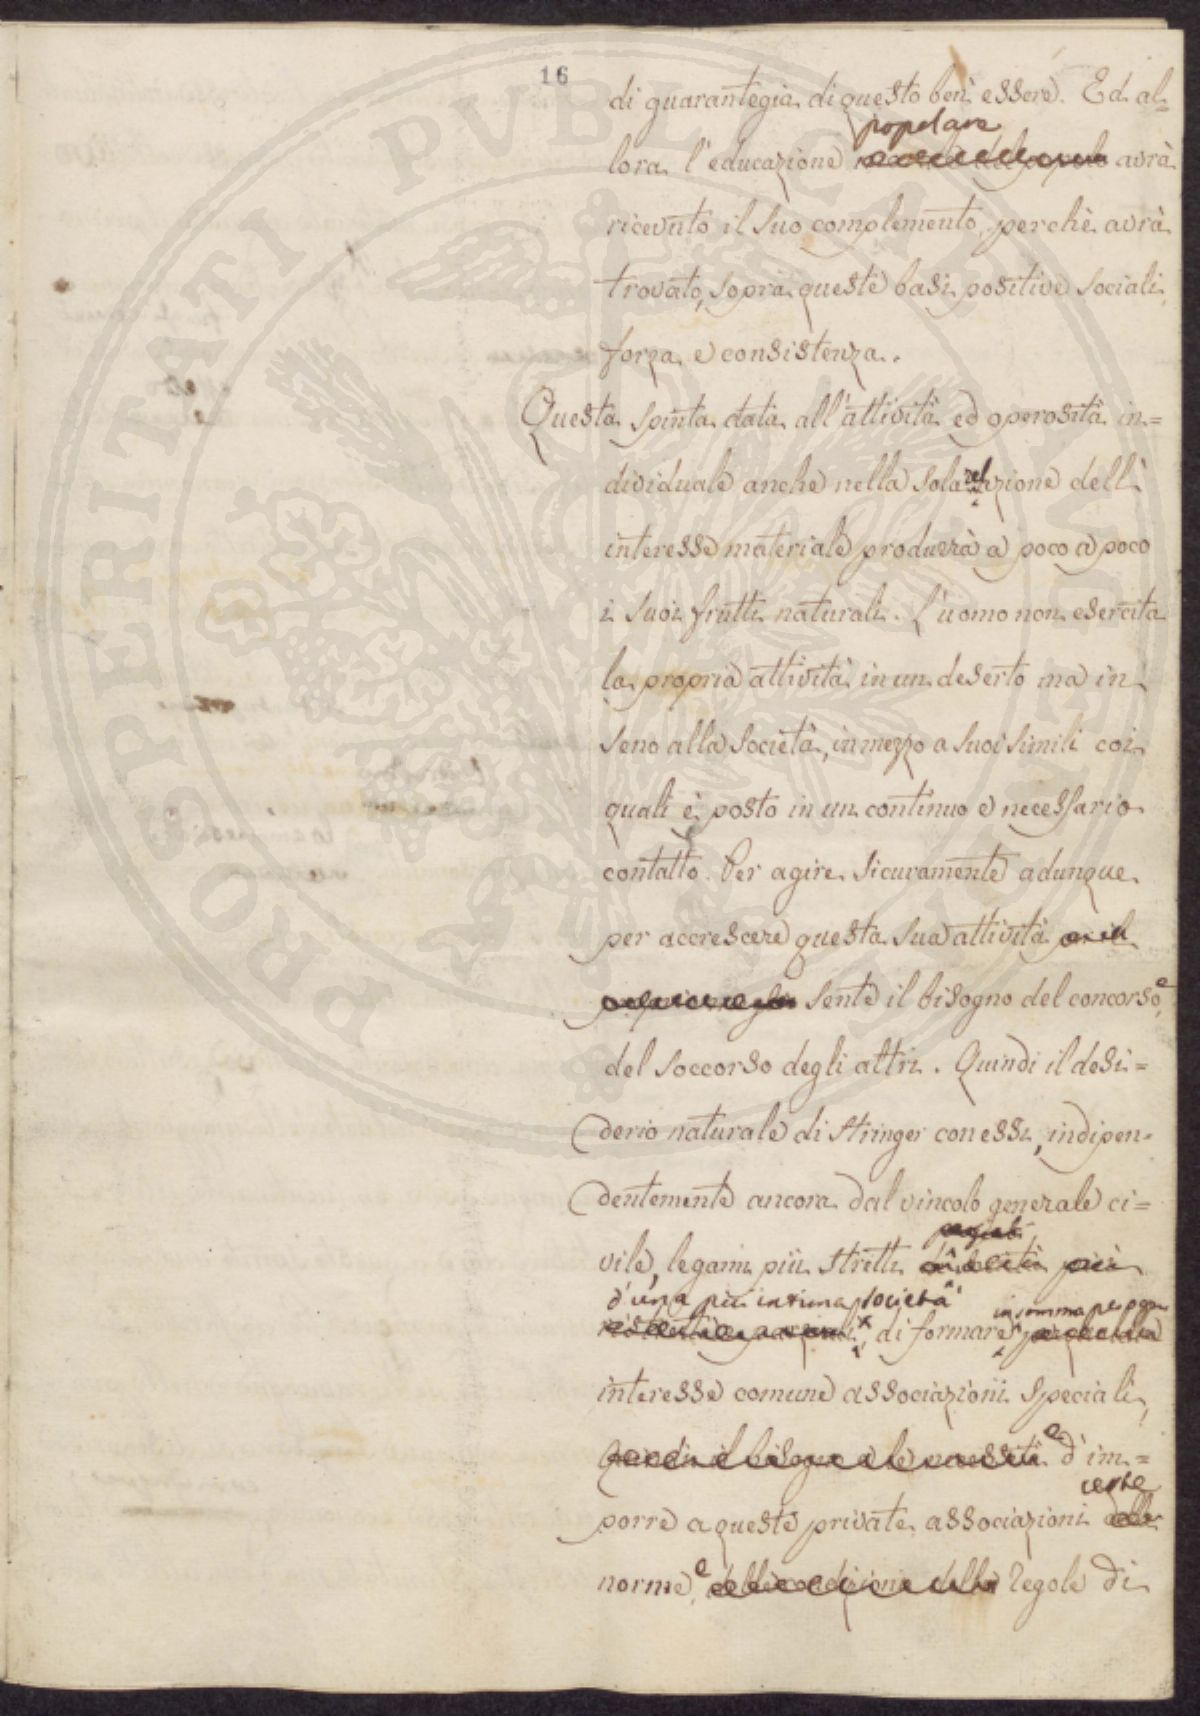 16
di guarantegia di questo ben'essere. Ed al=
popolare
lora l'educazione avrà
ricevuto il suo complemento, perchè avrà
trovato, sopra queste basi positive sociali,
forza e consistenza.
Questa spinta data all'attività ed operosità in=
dividuale anche nella sola del
interesse materiale produrrà a poco a poco
i suoi frutti naturali. L'uomo non esercita
la propria attività in un deserto ma in
seno alla società, in mezzo a suoi simili coi
quali è posto in un continuo e necessario
contatto. Per agire sicuramente adunque
per accrescere questa sua attività
sente il bisogno del concorso e
del soccorso degli altri. Quindi il desi=
derio naturale di stringer con essi, indipen=
dentemente ancora dal vincolo generale ci=
vile, legami più stretti più
d'una più intima società insomma per ogni
di formare
interesse comune associazioni speciali,
e d'im=
certe
porre a queste private associazioni delle
norme e delle condizioni delle regole di
PROPERITATI PVBLICAE